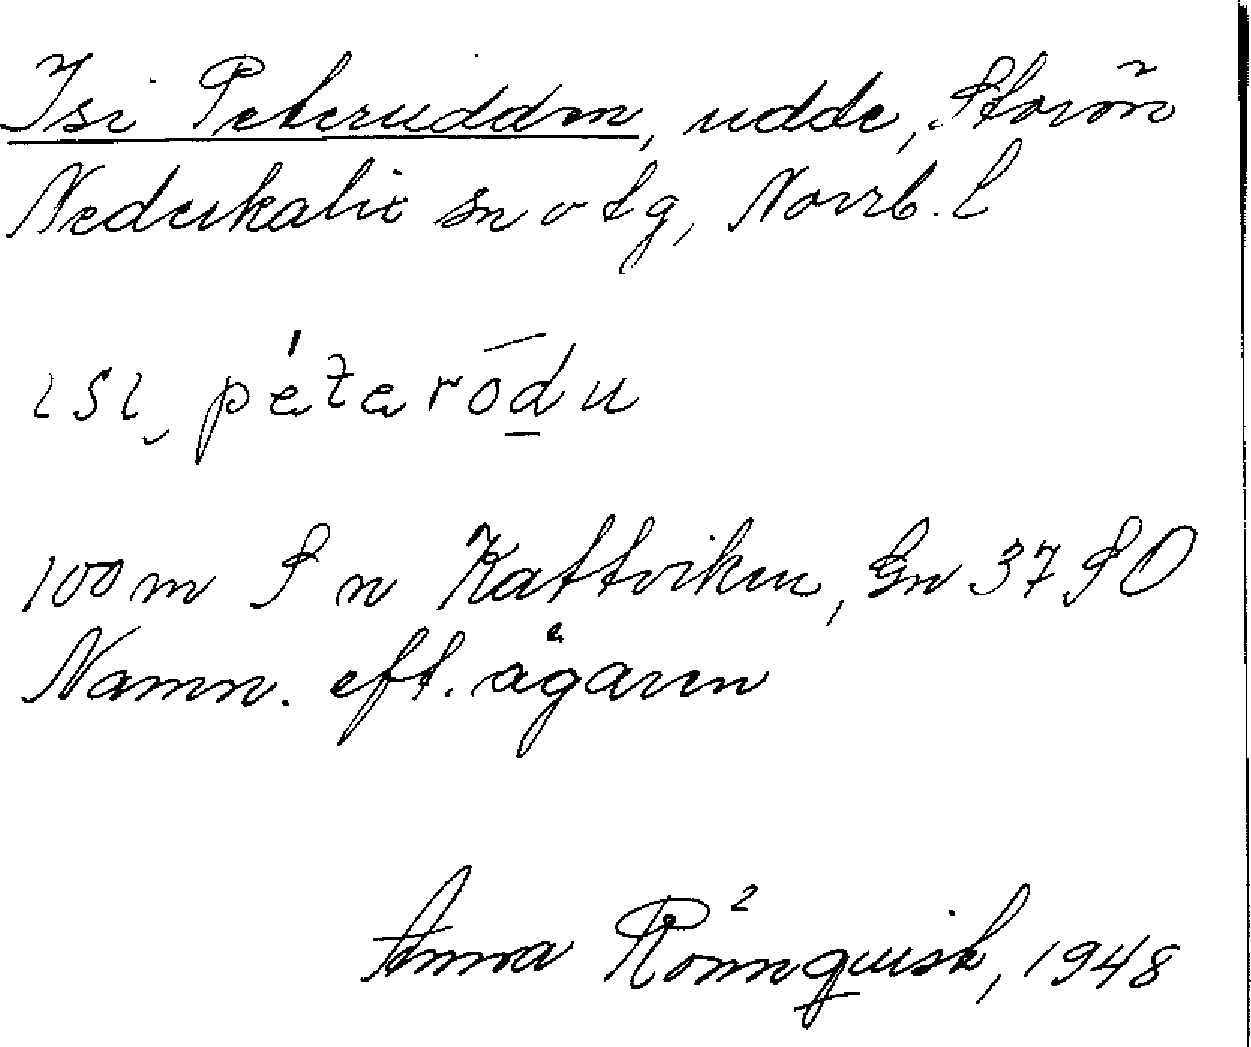 Isi Peteruddm, udde, Storön
Nederkalix sn o tg, Norrb. l
ɩsɩ, pétaro̅du
100 m S n Kattviken, Gn 37 SO
Namn. eft. ägaren
Anna Rönnquist, 1948